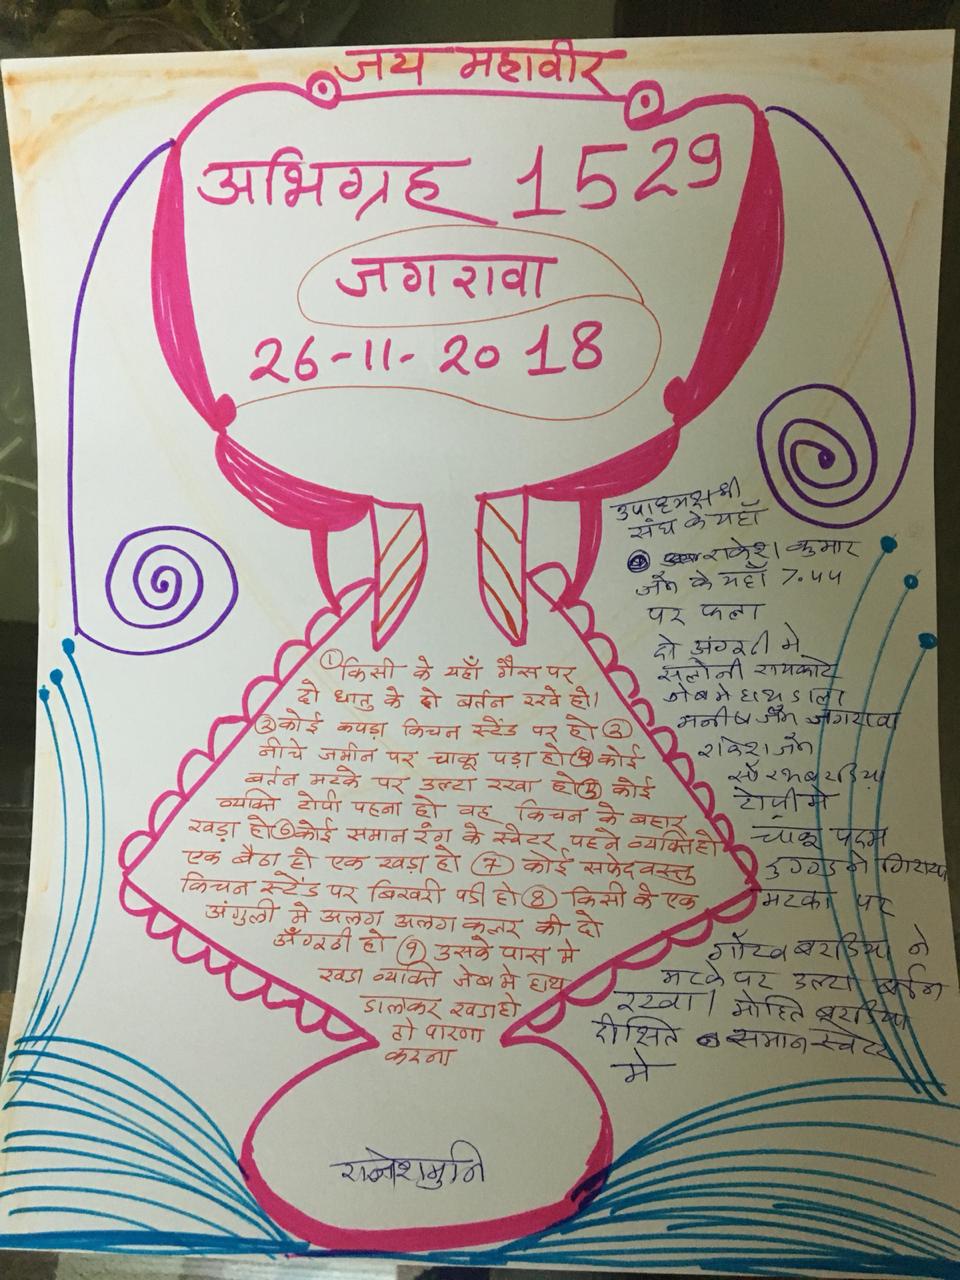 जय महावीर
अभिग्रह 1529
जगरावा
26-11-2018
① किसी के यहाँ गैस पर
दो धातु के दो बर्तन रखे हो।
② कोई कपडा किचन स्टैंड पर हो ③
नीचे जमीन पर चाकू पड़ा हो ④ कोई
बर्तन मटके पर उल्टा रखा हो ⑤ कोई
व्यक्ति टोपी पहना हो वह किचन के बहार
खड़ा हो ⑥ कोई समान रंग के स्वेटर पहने व्यक्ति हो
एक बैठा हो एक खड़ा हो ⑦ कोई सफेद वस्तु
किचन स्टैंड पर बिखरी पडी हो ⑧ किसी के एक
अंगुली मे अलग अलग कलर की दो
अँगूठी हो ⑨ उसके पास मे
खडा व्यक्ति जेब मे हाथ
डालकर खडा हो
तो पारणा
करना
उपाध्यक्ष श्री
संघ के यहाँ
राकेश कुमार
जैन के यहाँ 7.44
पर फला
दो अंगूठी मे
सलोनी रायकोट
जेब मे हाथ डाला
मनीष जैन जगरावा
राकेश जैन
बरडिया
टोपी मे
चाकू पदम
दुग्गड ने गिराया
मटका पर
गौरव बरडिया ने
मटके पर उल्टा बर्तन
रखा। मोहित बरडिया
दीक्षित समान स्वेटर
मे
राजेशमुनि